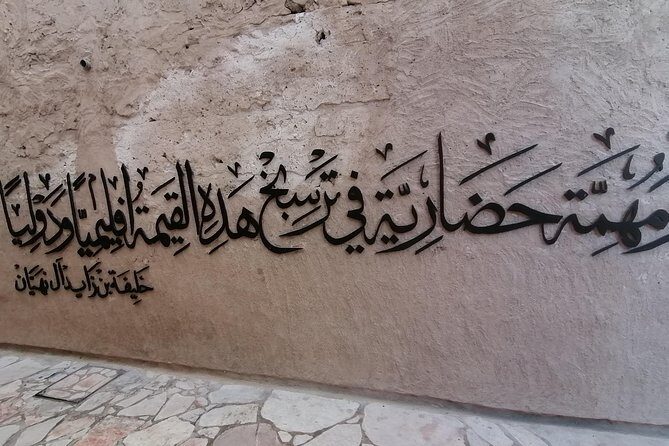 ومُهِمَّة حَضَارِيَّة فِي تَرْسِيخ هَذِهِ القِيمَة إقليمِيًّا وَدَوْلِيًّا
خَلِيفَة بن زَايد آل نهيَان